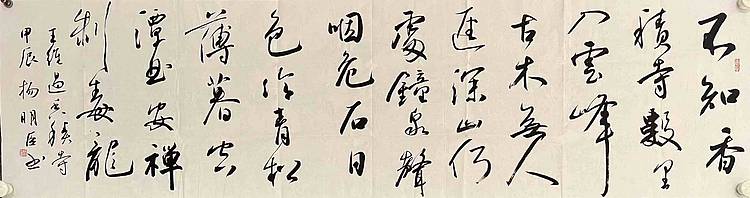 不知香
積寺數里
入雲峰
古木無人
徑深山何
處鐘泉聲
咽危石日
色冷青松
薄暮空
潭曲安禪
制毒龍
王維過香積寺
甲辰楊明臣書